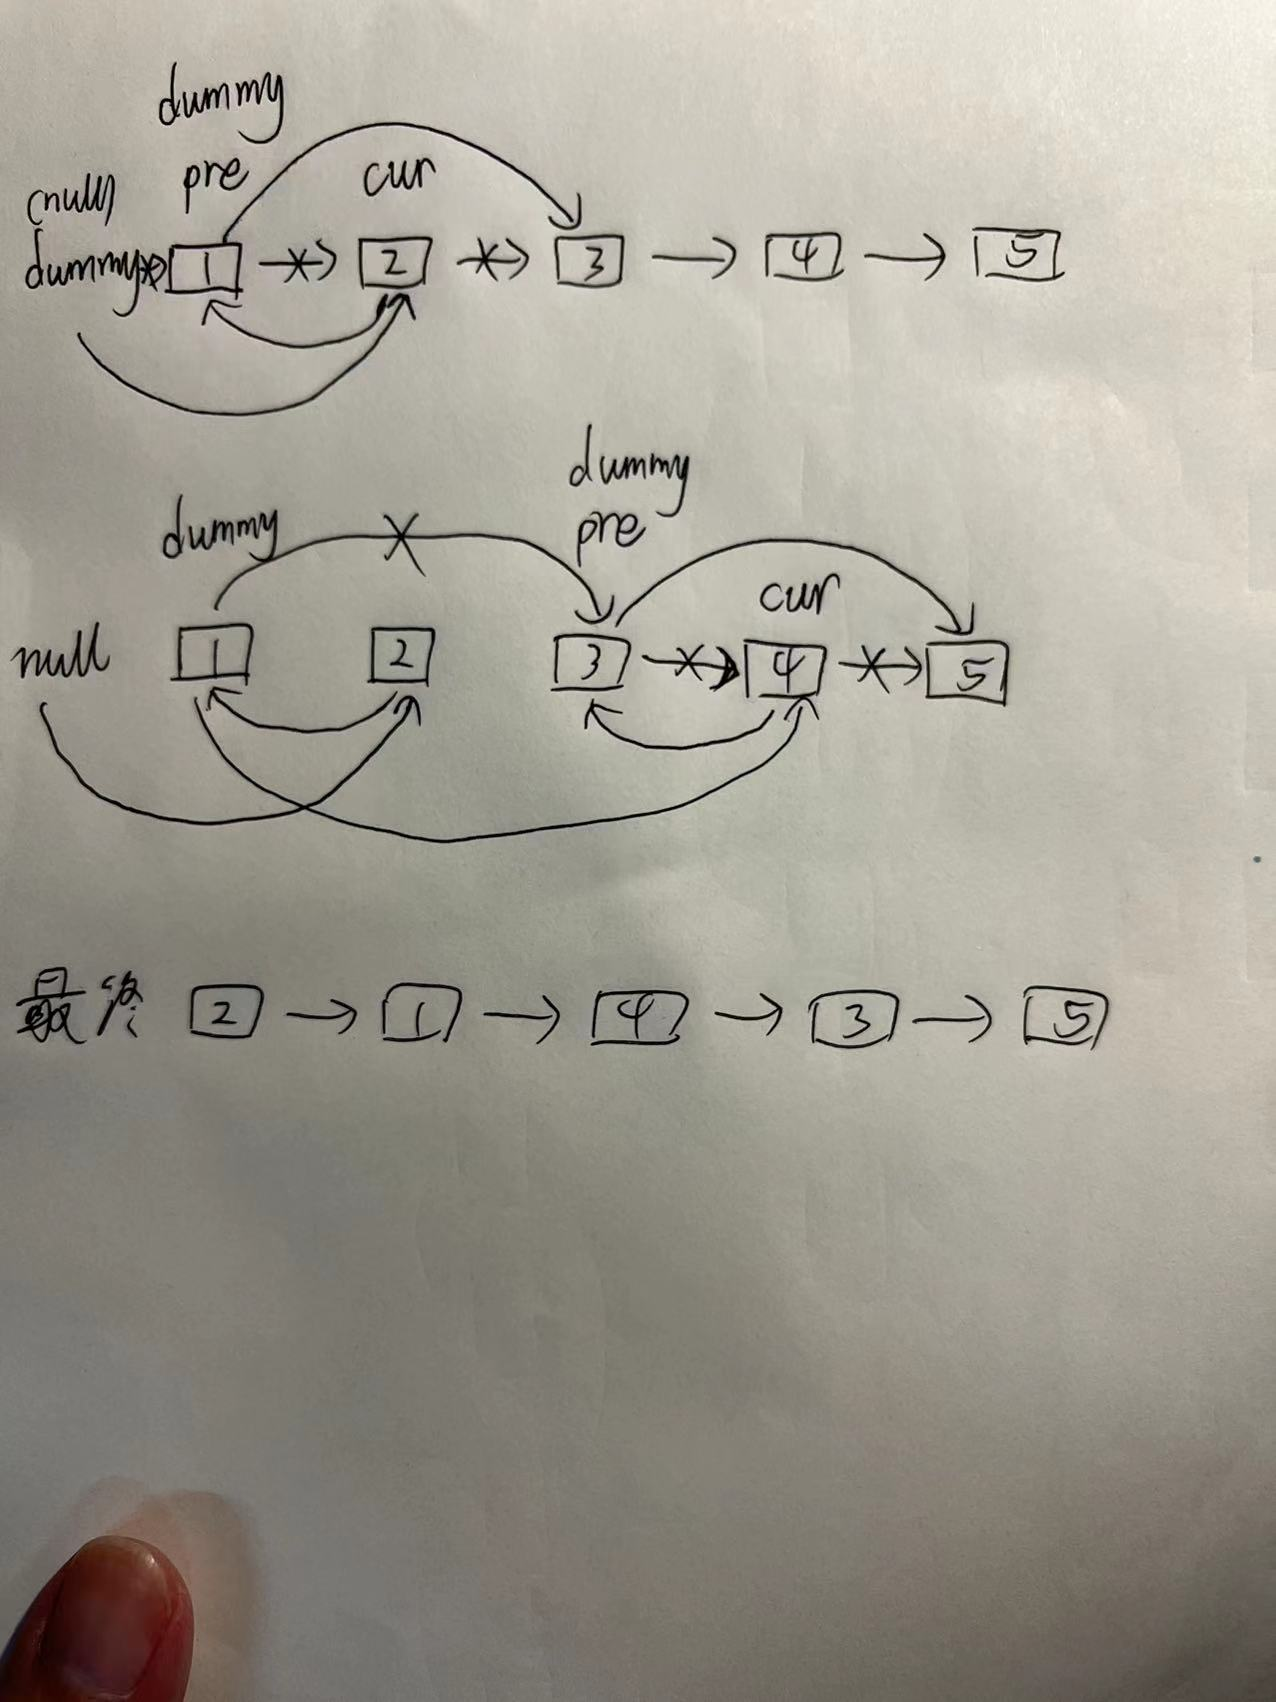 dummy
pre cur
(null)
dummy 1 → 2 → 3 → 4 → 5
dummy
pre
dummy
cur
null 1 2 3 → 4 → 5
最终 2 → 1 → 4 → 3 → 5